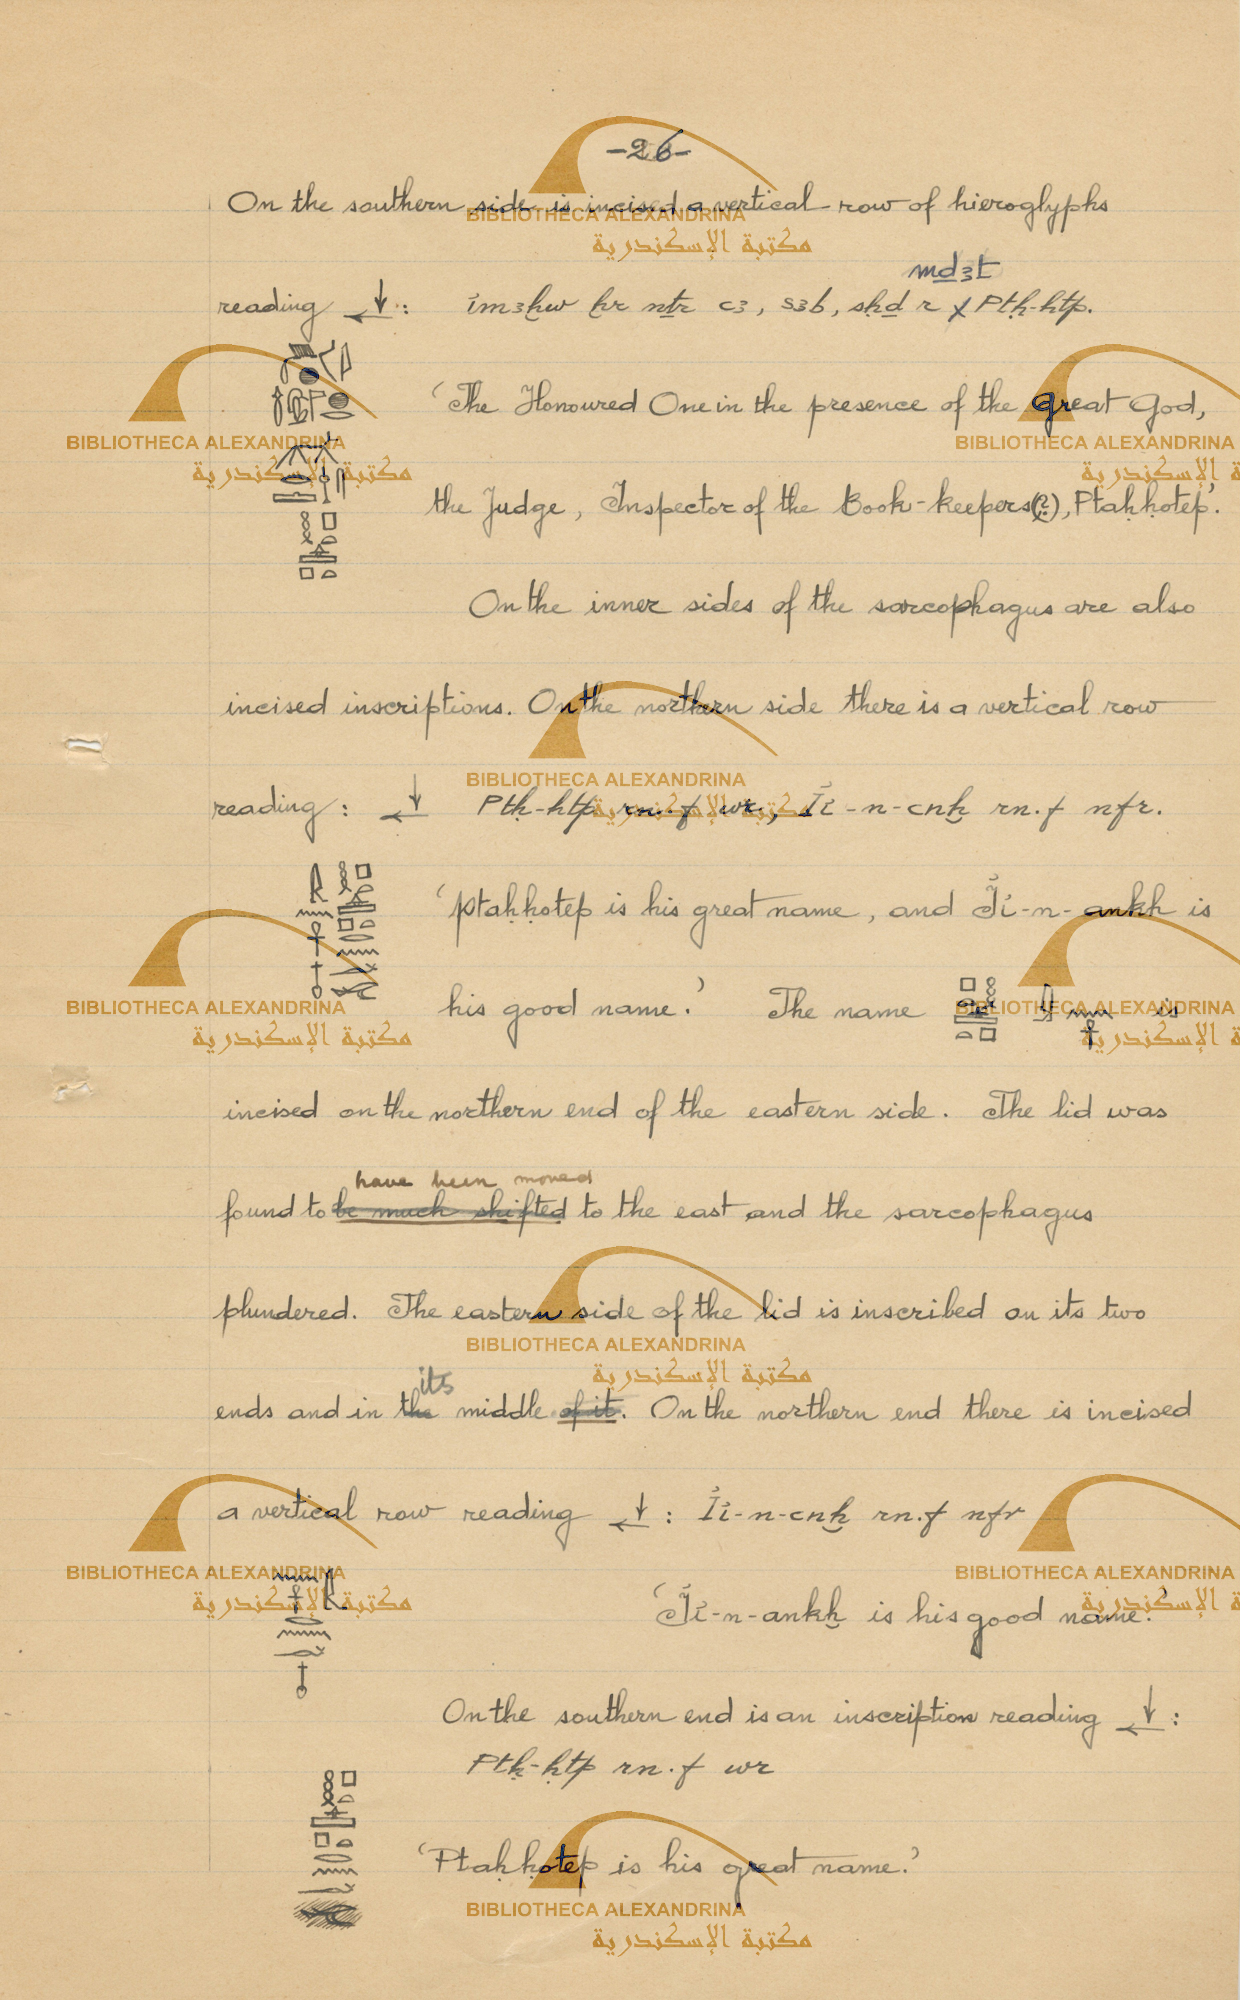 -26-
On the southern side is incised a vertical row of hieroglyphs
md̲ꜣt
reading ↓←: im̓ꜣḫw ḫr nt̲r cꜣ, sꜣb, sḥd̲ r x Ptḥ-ḥtp.
'The Honoured One in the presence of the Great God,
the Judge, Inspector of the Book-keepers(?), Ptaḥḥotep'.
On the inner sides of the sarcophagus are also
incised inscriptions. On the northern side there is a vertical row
reading: ↓← Ptḥ-ḥtp rn.f wr, Ii-n-cnḫ rn.f nfr.
'Ptaḥḥotep is his great name, and Ii-n-ankh is
his good name.' The name is
incised on the northern end of the eastern side. The lid was
have been moved
found to be much shifted to the east and the sarcophagus
plundered. The eastern side of the lid is inscribed on its two
its
ends and in the middle of it. On the northern end there is incised
a vertical row reading ↓←: Ii-n-cnḫ rn.f nfr
'Ii-n-ankḫ is his good name.'
On the southern end is an inscription reading ↓←:
Ptḥ-ḥtp rn.f wr
'Ptaḥḥotep is his great name.'
BIBLIOTHECA ALEXANDRINA
مكتبة الإسكندرية